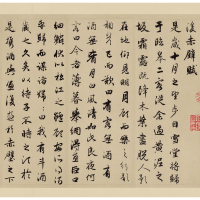 後赤壁賦
是歲十月之望步自雪堂將歸
于臨皋二客從余過黃泥之坂
霜露既降木葉盡脫人影
在地仰見明月顧而樂之行歌
相答已而歎曰有客無酒有
酒無肴月白風清如此良夜何
客曰今者薄暮舉網得魚巨口
細鱗狀似松江之鱸顧安所得酒
乎歸而謀諸婦婦曰我有斗酒
藏之久矣以待子不時之須於
是攜酒與魚復遊於赤壁之下